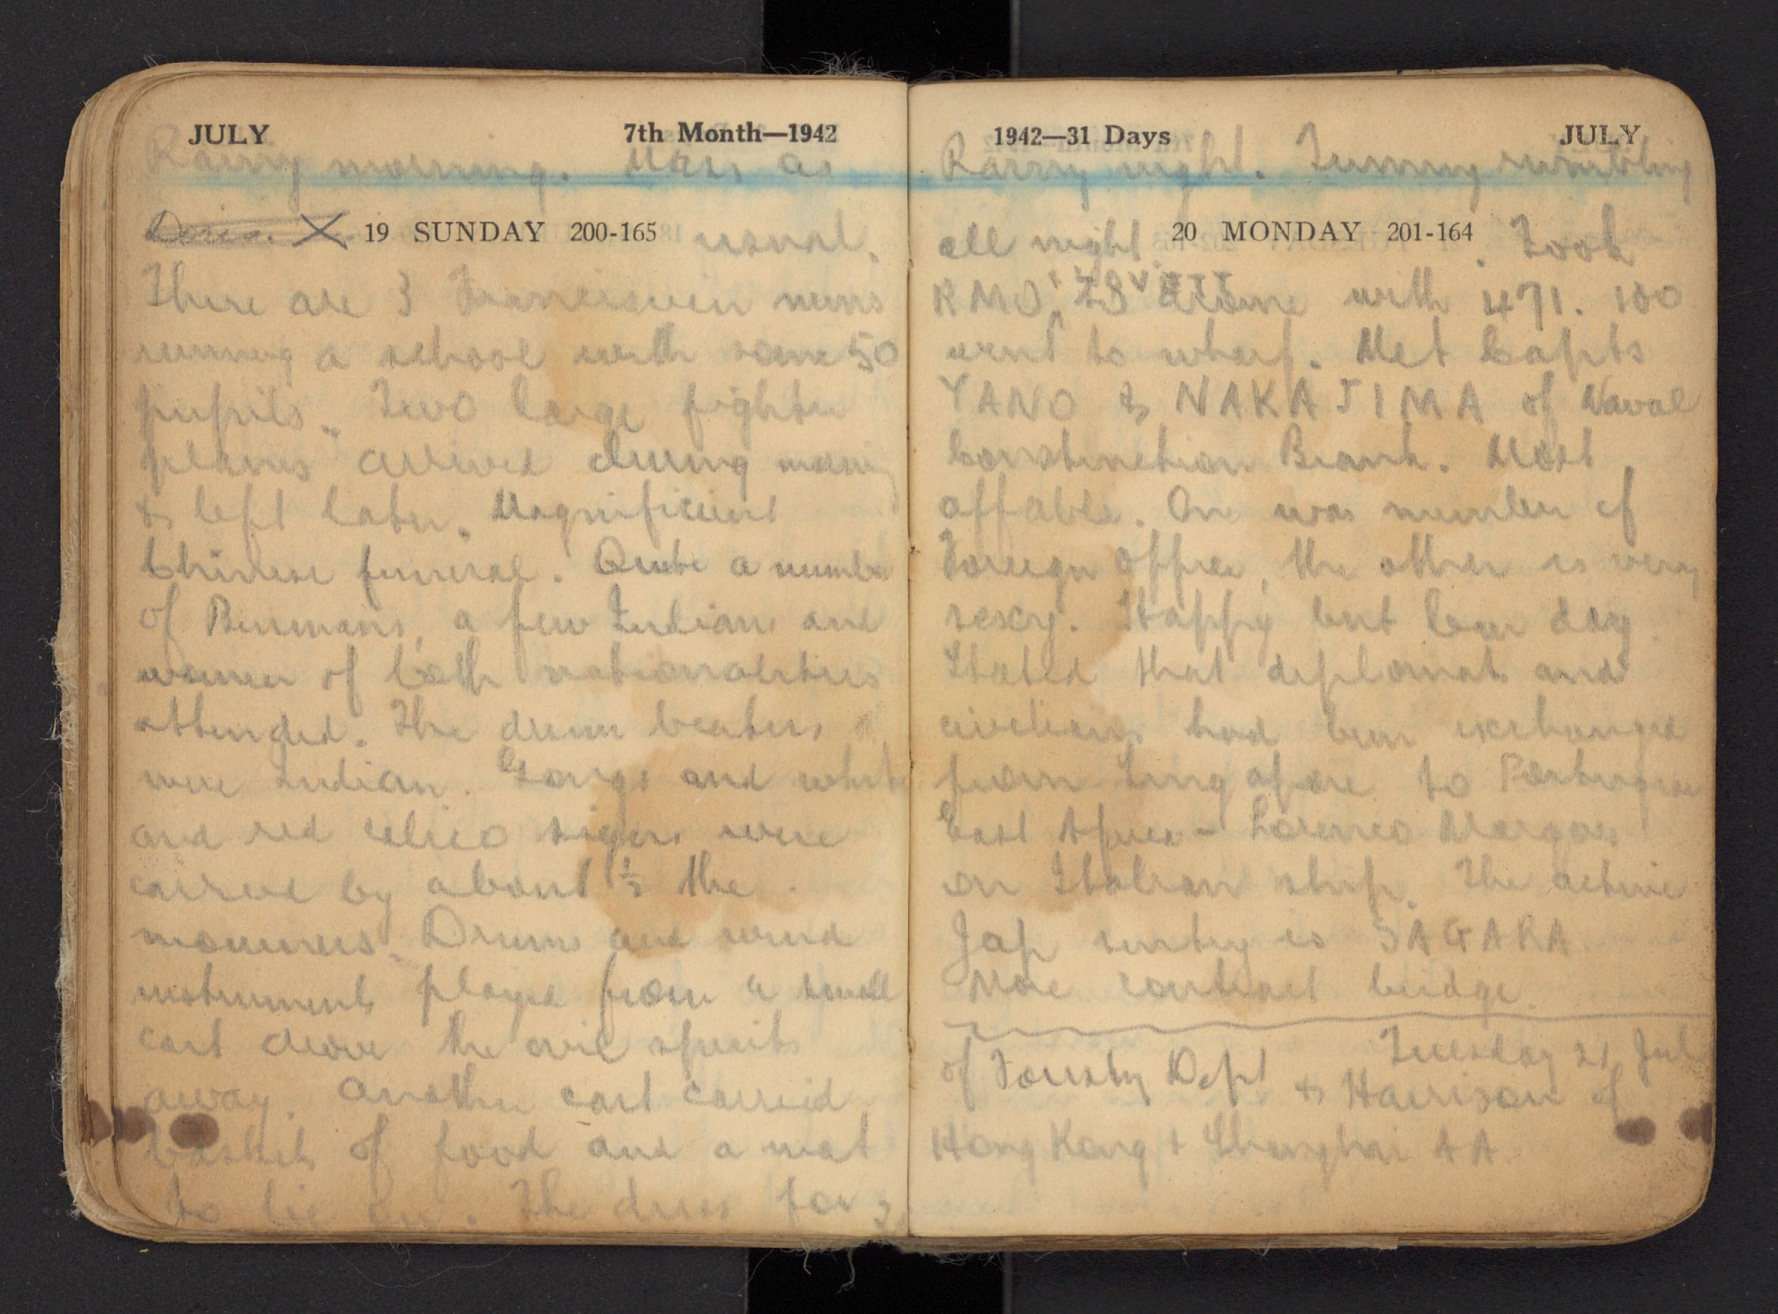 JULY 7th Month—1942
Rainy morning. Mass as
Doris. X 19 SUNDAY 200-165 usual.
There are 3 Franciscan nuns
running a school with some 50
pupils. Two large fighter
planes arrived during morning
& left later. Magnificient
Chinese funeral. Quite a number
of Burmans, a few Indians and
women of both nationalities
attended. The drum beaters
were Indian. Gongs and white
and red calico signs were
carried by about ½ the
mourners. Drums and wind
instruments played from a small
cart drove the evil spirits
away. Another cart carried
baskets of food and a mat
to lie on. The dress for
1942—31 Days JULY
Rainy night. Tummy rumbling
all night. 20 MONDAY 201-164 . Took
RMO, with 471. 100
went to wharf. Met Capts
YANO & NAKAJIMA of Naval
Construction Branch. Most
affable. One was member of
Foreign Office, the other is very
sexy. Happy but low day.
Stated that diplomats and
civilians had been exchanged
from Singapore to Portuguese
East Africa - Lorenco Marques
on Italian ship. The active
Jap sentry is SAGARA
More contract bridge.
Tuesday 21 Jul
of Forestry Dept & Harrison of
Hong Kong & Shanghai AA